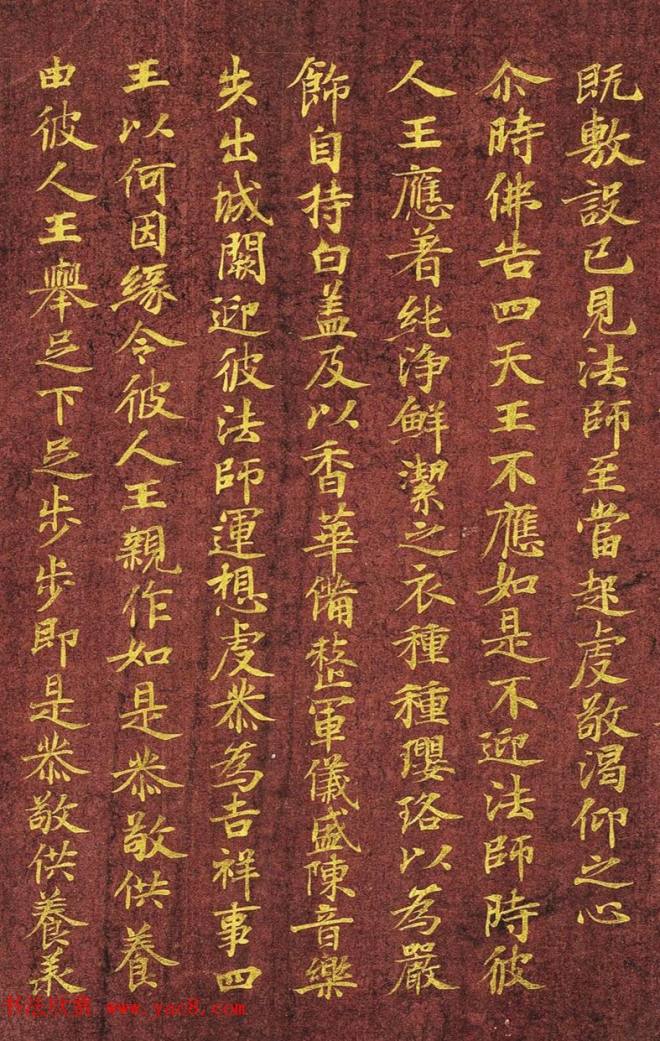 既敷設已見法師至當起虔敬渴仰之心
尒時佛告四天王不應如是不迎法師時彼
人王應著純淨鮮潔之衣種種瓔珞以為嚴
飾自持白盖及以香華備整軍儀盛陳音樂
步出城闕迎彼法師運想虔恭為吉祥事四
王以何因緣令彼人王親作如是恭敬供養
由彼人王舉足下足步步即是恭敬供養承
书法欣赏 www.yac8.com